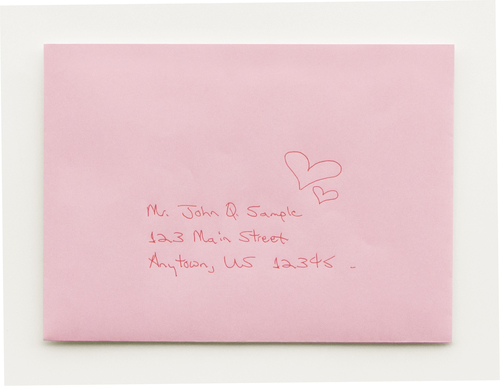 Mr. John Q. Sample
123 Main Street
Anytown, US 12345